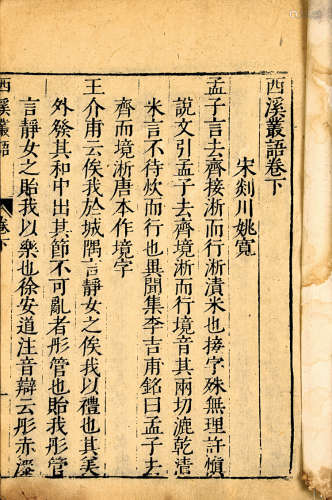 西溪叢語卷下
宋剡川姚寬
孟子言去齊接淅而行淅漬米也接字殊無理許愼
說文引孟子去齊滰淅而行滰音其兩切漉乾漬
米言不待炊而行也異聞集李吉甫銘曰孟子去
齊而境淅唐本作境字
王介甫云俟我於城隅言靜女之俟我以禮也其美
外發其和中出其節不可亂者彤管也貽我彤管
言靜女之貽我以樂也徐安道注音辯云彤赤漆
西溪叢語
卷下